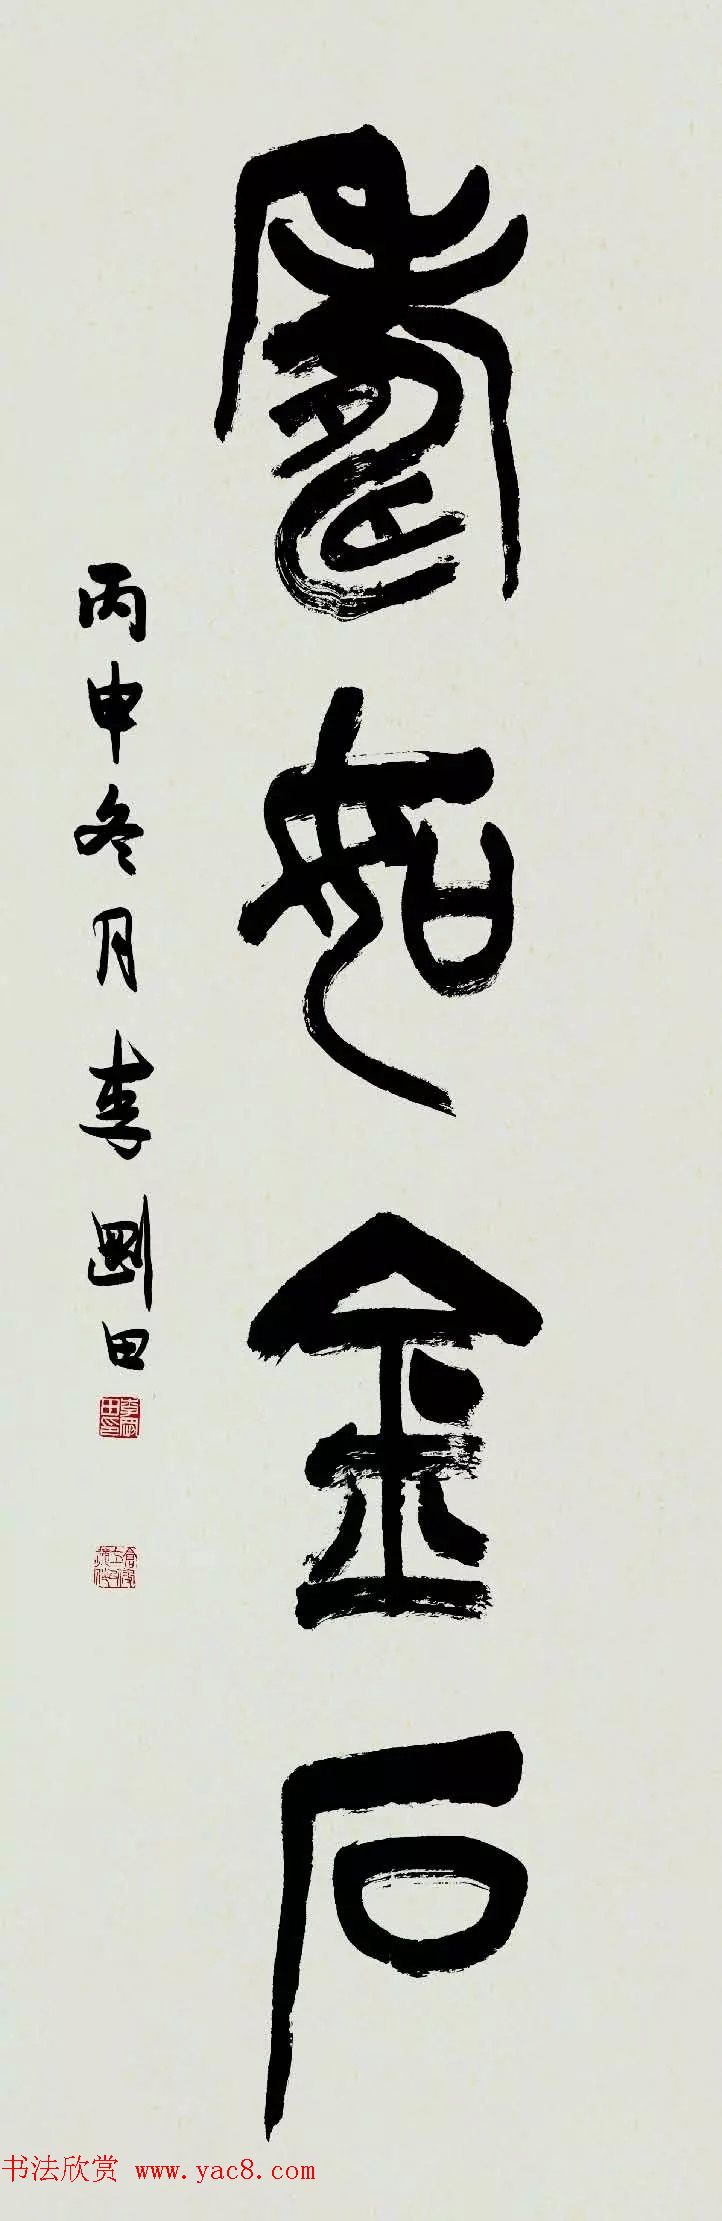 壽如金石
丙申冬月李剛田
书法欣赏 www.yac8.com